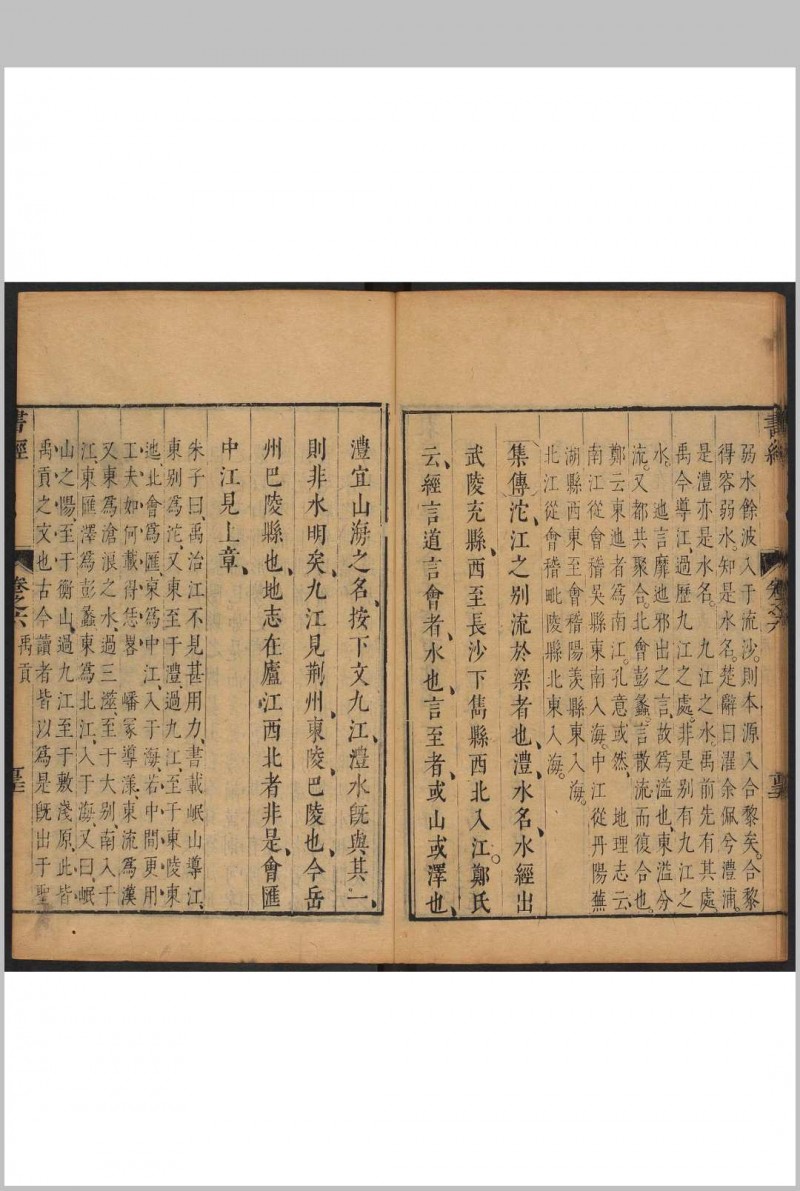 書經
卷之六
弱水餘波入于流沙。則本源入合黎矣。合黎
得容弱水。知是水名。楚辭曰濯余佩兮澧浦。
是澧亦是水名。 九江之水禹前先有其處
禹今導江、過歷九江之處。非是別有九江之
水。 迆言靡迆邪出之言。故爲溢也、東溢分
流。又都共聚合。北會彭蠡。言散流而復合也。
鄭云東迆者爲南江。孔意或然、 地理志云、
南江從會稽吳縣東南入海。中江從丹陽蕪
湖縣西東至會稽陽羨縣東入海。
北江從會稽毗陵縣北東入海。
集傳沱、江之別流於梁者也、澧水名、水經出
武陵充縣、西至長沙下雋縣西北入江。鄭氏
云、經言道言會者、水也、言至者、或山或澤也、
澧宜山澤之名、按下文九江、澧水既與其一、
則非水明矣、九江見荆州、東陵、巴陵也、今岳
州巴陵縣也、地志在廬江西北者非是、會匯
中江見上章、
朱子曰、禹治江不見甚用力、書載岷山導江、
東別爲沱、又東至于澧過九江、至于東陵東
迆、北會爲匯、東爲中江、入于海、若中間更用
工夫如何載得恁畧 嶓冢導漾、東流爲漢
又東爲滄浪之水、過三澨、至于大別、南入于
江、東匯澤爲彭蠡東爲北江、入于海、又曰、岷
山之陽、至于衡山、過九江至于敷淺原、此皆
禹貢之文也古今讀者皆以爲是既出于聖
書經
卷之六
禹貢